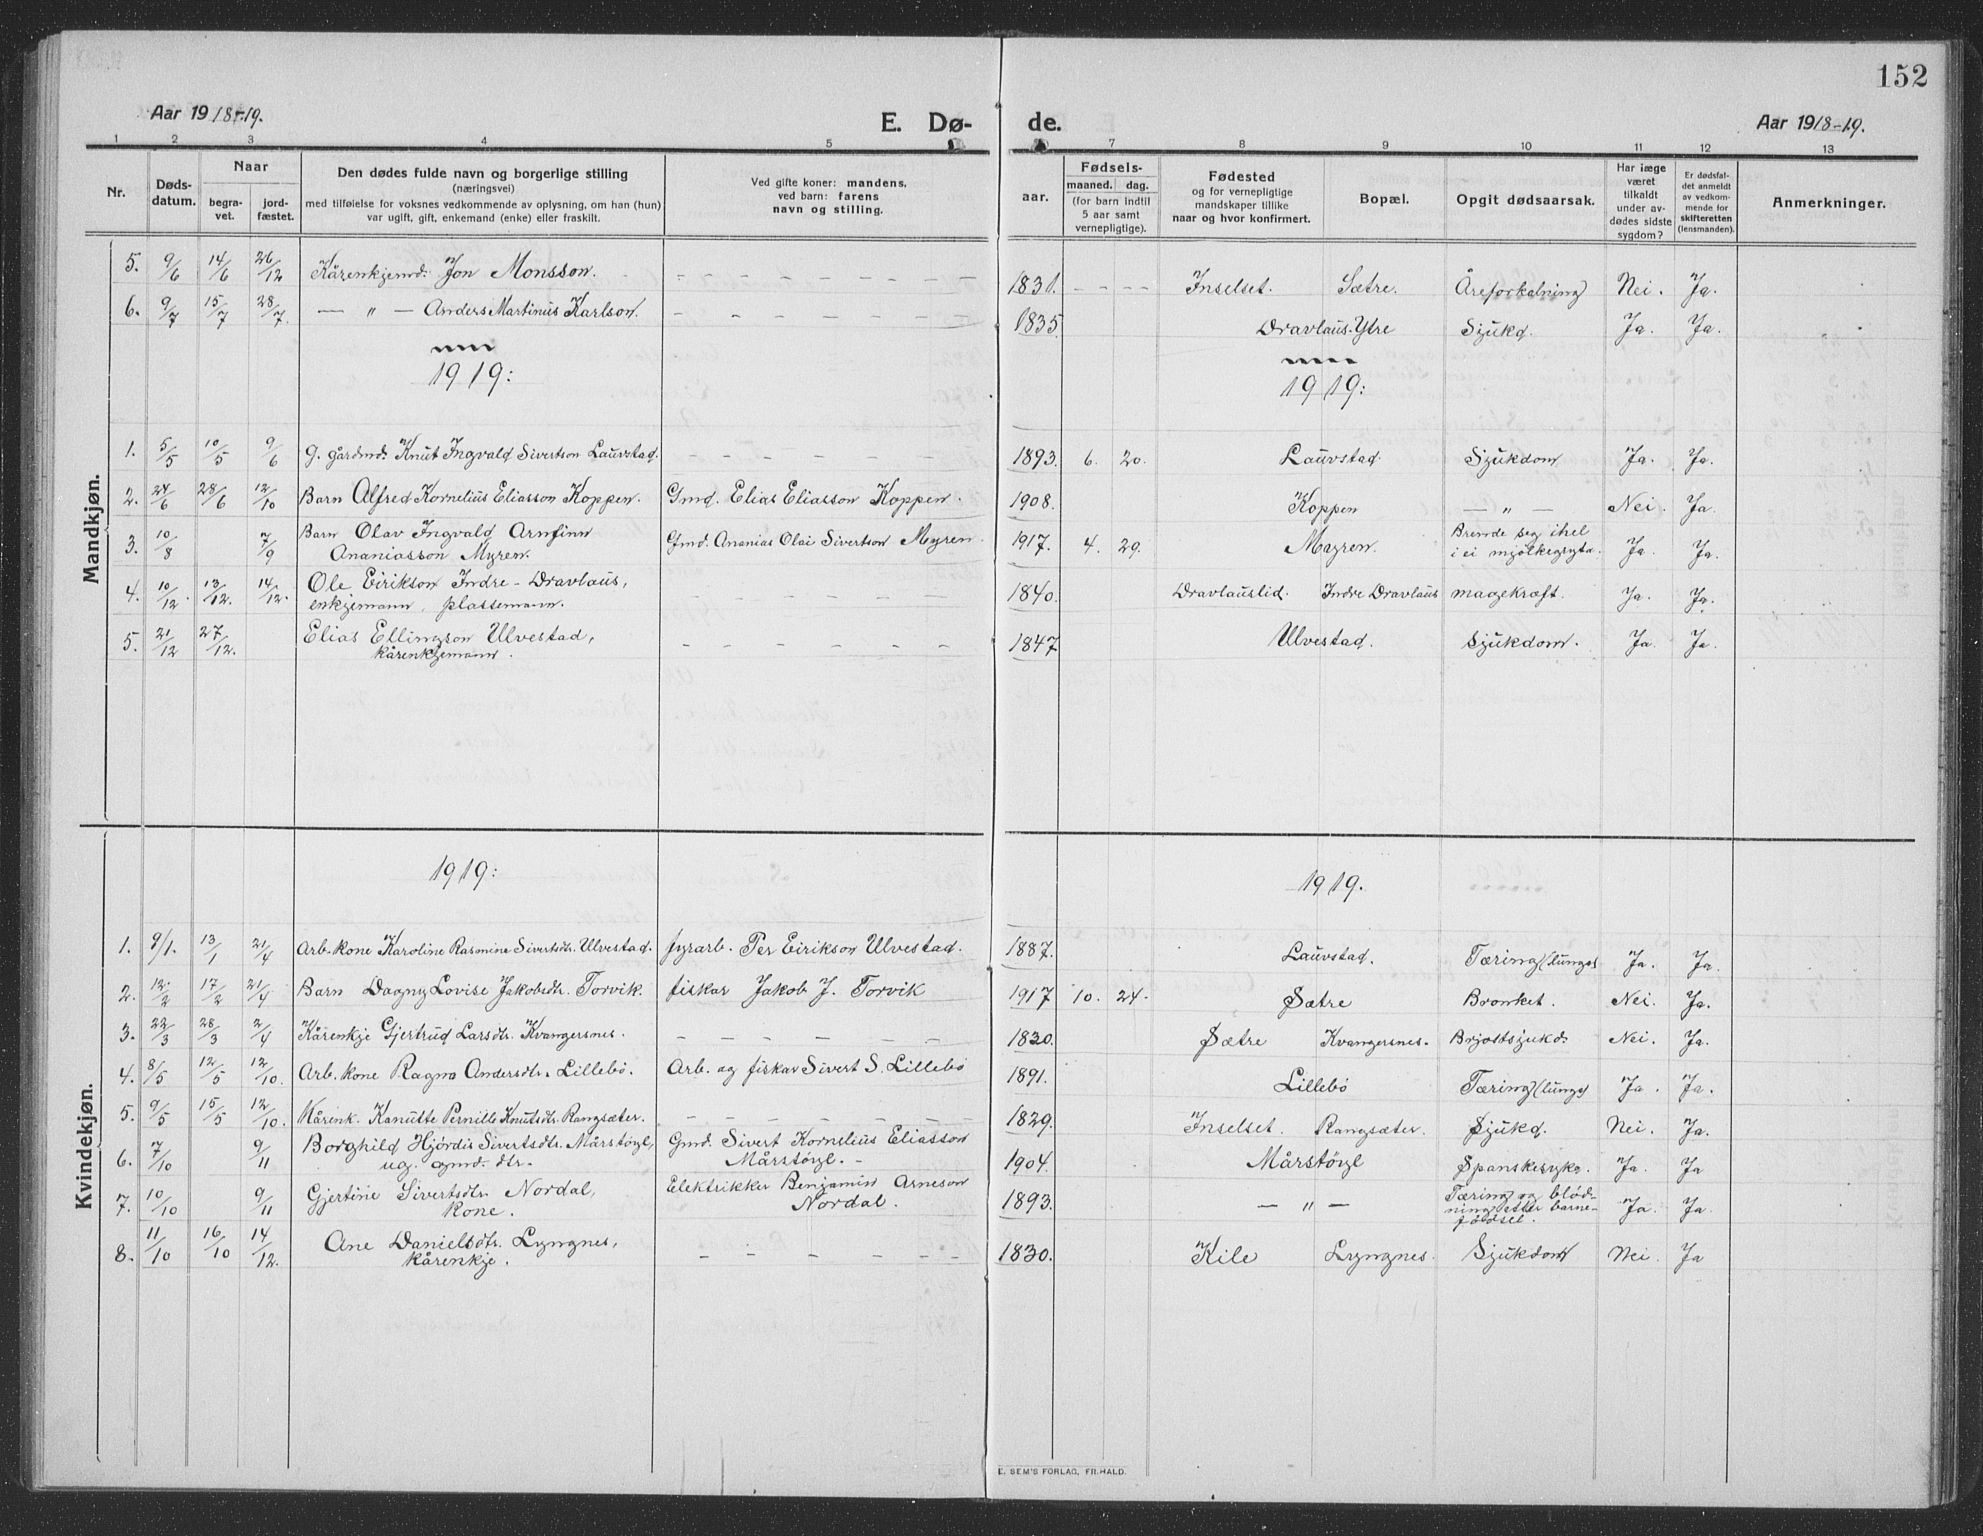 152
Aar 1918-19.
E. Dø-
de.
Aar 1918-19.
1 2 3 4 5 7 8 9 10 11 12 13
Nr.
Døds-
datum.
Naar
begra-
vet.
jord-
fæstet.
Den dødes fulde navn og borgerlige stilling
(næringsvei)
med tilføielse for voksnes vedkommende av oplysning, om han (hun)
var ugift, gift, enkemand (enke) eller fraskilt.
Ved gifte koner: mandens,
ved barn: farens
navn og stilling.
aar.
Fødsels-
maaned. dag.
(for barn indtil
5 aar samt
vernepligtige).
Fødested
og for vernepligtige
mandskaper tillike
naar og hvor konfirmert.
Bopæl.
Opgit dødsaarsak.
Har læge
været
tilkaldt
under av-
dødes sidste
sygdom?
Er dødsfal-
det anmeldt
av vedkom-
mende for
skifteretten
(lensmanden).
Anmerkninger.
Mandkjøn.
5. 9/6 14/6 26/12 Kårenkjemd. Jon Monsson. - - - - - - - 1831. - - - - Inselset. Sætre. Åreforkalning Nei. Ja.
6. 9/7 15/7 28/7. — " — Anders Martinus Karlson. - - - - - - 1835 Dravlaus-Ytre Sjukd. Ja. Ja.
1919: 1919:
1. 5/5 10/5 9/6 G. gårdmd. Knut Ingvald Sivertson Lauvstad. - - - - - - 1893. 6. 20. Lauvstad. Sjukdom Ja. Ja.
2. 24/6 28/6 12/10 Barn Alfred Kornelius Eliasson Koppen. Gmd. Elias Eliasson Koppen. 1908. Koppen — " — Nei. Ja.
3. 10/8 7/9 Barn Olav Ingvald Arnfinn Gmd. Ananias Olai Sivertson Myren. 1917. 4. 29. Myren. Brende seg ihel Ja. Ja.
Ananiasson Myren. i ei mjølkegryta.
4. 10/12. 13/12. 14/12. Ole Eirikson Indre-Dravlaus, - - - - - - 1840. Dravlauslid. Indre Dravlaus magekræft. Ja. Ja.
enkjemann, plassemann.
5. 21/12 27/12. Elias Ellingson Ulvestad, - - - - - - 1847 Ulvestad. Sjukdom. Ja. Ja.
kårenkjemann.
Kvindekjøn.
1919: 1919.
1. 9/1. 13/1 21/4 Arb. kone Karoline Rasmine Sivertsdtr. Ulvestad. fyrarb. Per Eirikson Ulvestad. 1887. Lauvstad. Tæring (lunge) Ja. Ja.
2. 12/2 17/2 21/4 Barn Dagny Lovise Jakobsdtr. Torvik. fiskar Jakob J. Torvik 1917 10. 24. Sætre Bronket. Nei. Ja.
3. 22/3 28/3 2/4 Kårenkje Gjertrud Larsdtr. Kvangersnes. - - - - - - 1820. Sætre Kvangersnes. Brjostsjukd. Nei. Ja.
4. 8/5 12/5 12/10. Arb. kone Ragna Andersdtr. Lillebø. Arb. og fiskar Sivert S. Lillebø 1891. Lillebø Tæring (lunge) Ja. Ja.
5. 9/5 15/5 12/10. Kårenk. Kanutte Pernille Knutsdtr. Rangsæter. - - - - - - 1829. Inselset. Rangsæter. Sjukd. Nei. Ja.
6. 7/10 9/11 Borghild Hjördis Sivertsdtr. Mårstöyl, Gmd. Sivert Kornelius Eliasson 1904. Mårstöyl Spanskesyke. Ja. Ja
ug. gmd. dtr. Mårstöyl.-
7. 10/10 9/11 Gjertine Sivertsdtr. Nordal, Elektrikker Benjamin Arneson 1893. — " — Tæring og blød- Ja. Ja
kone. Nordal. ning etter barne-
fødsel.
8. 11/10 16/10 14/12. Ane Danielsdtr. Lyngnes, - - - - - - 1830. Kile Lyngnes. Sjukdom Nei. Ja
kårenkje.
E. SEM'S FORLAG, FR.HALD.